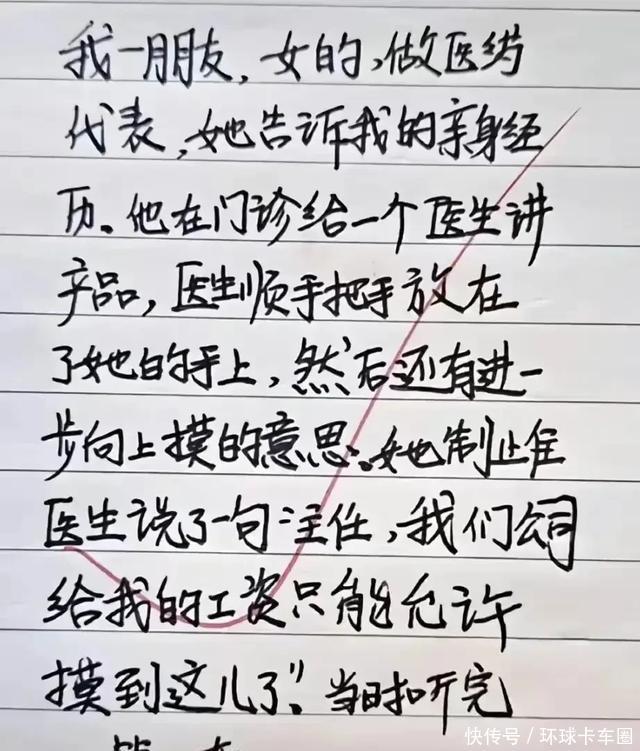 我一朋友，女的，做医药
代表，她告诉我的亲身经
历。他在门诊给一个医生讲
产品，医生顺手把手放在
了她的手上，然后还有进一
步向上摸的意思。她制止住
医生说了一句：主任，我们公司
给我的工资只能允许
摸到这儿了”。当时听完
快传号/环球卡车圈